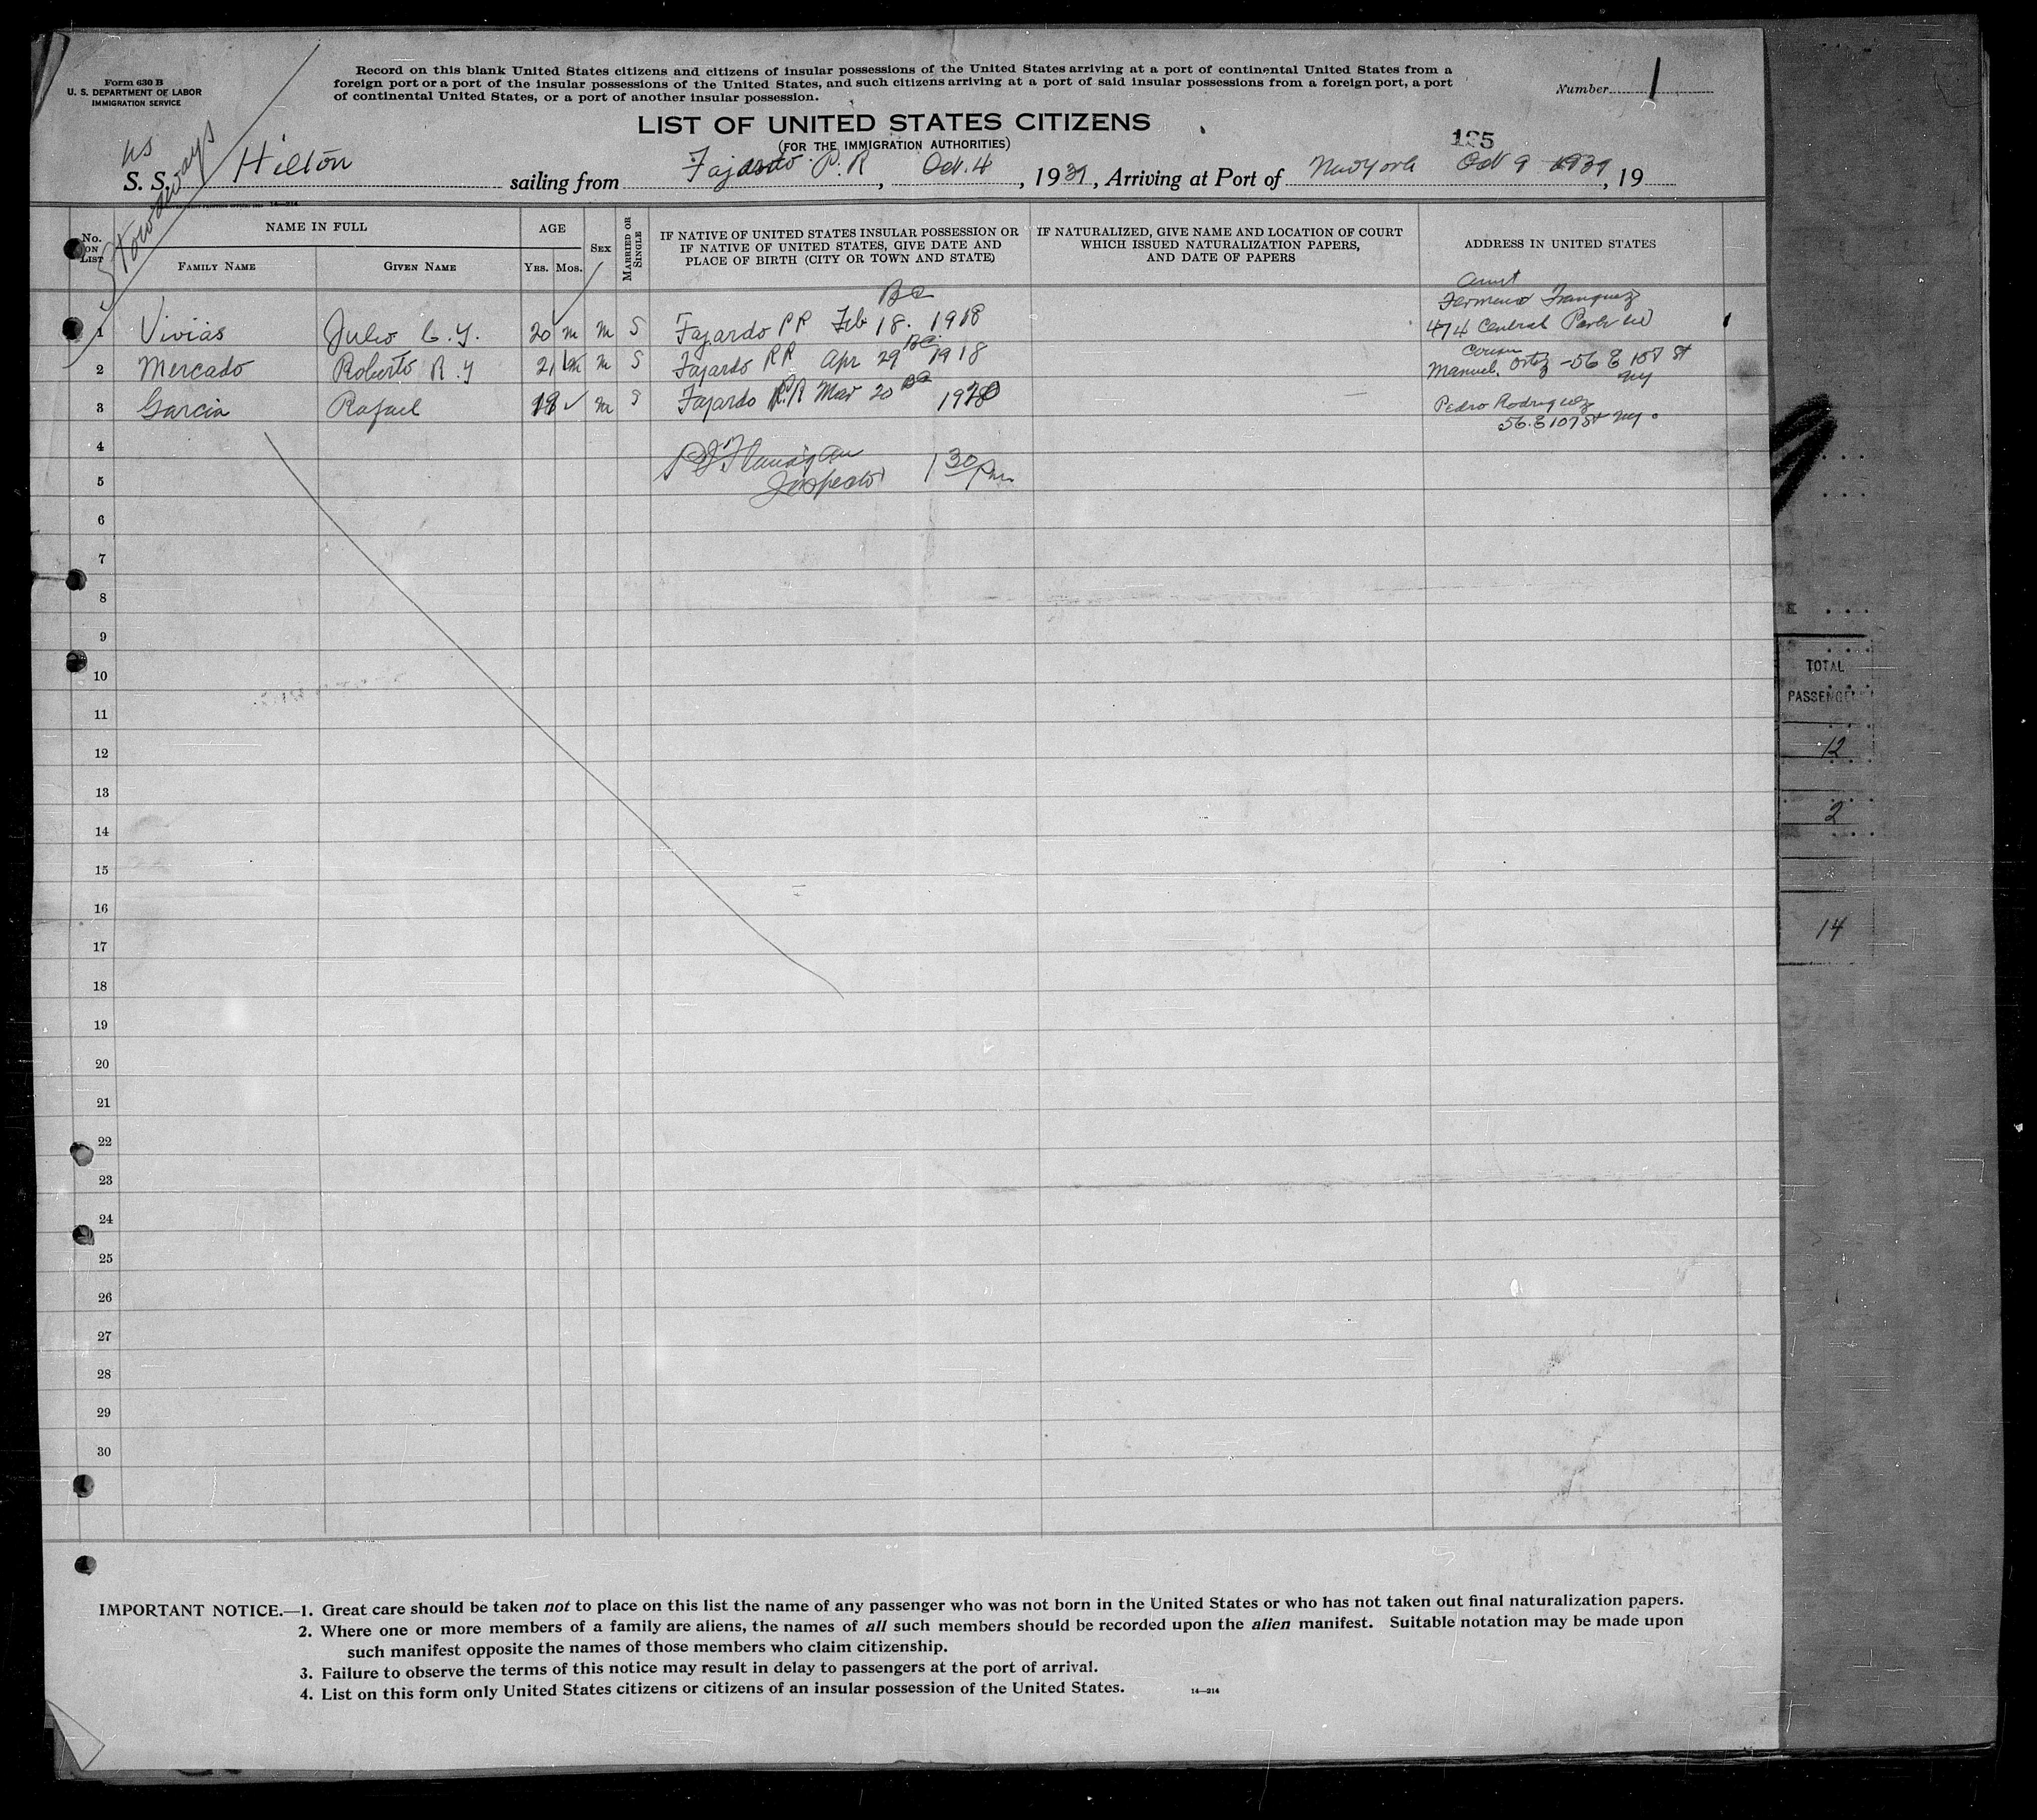 Form 630 B
U. S. DEPARTMENT OF LABOR
IMMIGRATION SERVICE
Record on this blank United States citizens and citizens of insular possessions of the United States arriving at a port of continental United States from a
foreign port or a port of the insular possessions of the United States, and such citizens arriving at a port of said insular possessions from a foreign port, a port
of continental United States, or a port of another insular possession.
Number 1
LIST OF UNITED STATES CITIZENS
(FOR THE IMMIGRATION AUTHORITIES)
185
S. S. Hilton sailing from Fajardo P.R, Oct. 4, 1939, Arriving at Port of New York Oct 9 1939, 19
Stowaways
14—214
No. ON LIST
NAME IN FULL
FAMILY NAME
GIVEN NAME
AGE
YRS. MOS.
SEX
MARRIED OR SINGLE
IF NATIVE OF UNITED STATES INSULAR POSSESSION OR
IF NATIVE OF UNITED STATES, GIVE DATE AND
PLACE OF BIRTH (CITY OR TOWN AND STATE)
IF NATURALIZED, GIVE NAME AND LOCATION OF COURT
WHICH ISSUED NATURALIZATION PAPERS,
AND DATE OF PAPERS
ADDRESS IN UNITED STATES
BC Aunt
1 Vivias Julio C. Y. 20 m m S Fajardo PR Feb 18. 1918 474 Central Park W
BC Cousin
2 Mercado Roberto R. Y 21 m S Fajardo PR Apr 29 1918 Manuel Ortiz - 56 E 107 St
NY
BC
3 Garcia Rafael 18 m S Fajardo P.R Mar 20 1920 Pedro Rodriguez
56. E 107 St NY
4
Inspector 1 30 Pm
5
6
7
8
9
10
11
12
13
14
15
16
17
18
19
20
21
22
23
24
25
26
27
28
29
30
IMPORTANT NOTICE.—1. Great care should be taken not to place on this list the name of any passenger who was not born in the United States or who has not taken out final naturalization papers.
2. Where one or more members of a family are aliens, the names of all such members should be recorded upon the alien manifest. Suitable notation may be made upon
such manifest opposite the names of those members who claim citizenship.
3. Failure to observe the terms of this notice may result in delay to passengers at the port of arrival.
4. List on this form only United States citizens or citizens of an insular possession of the United States.
14—214
TOTAL
PASSENGE
12
2
14